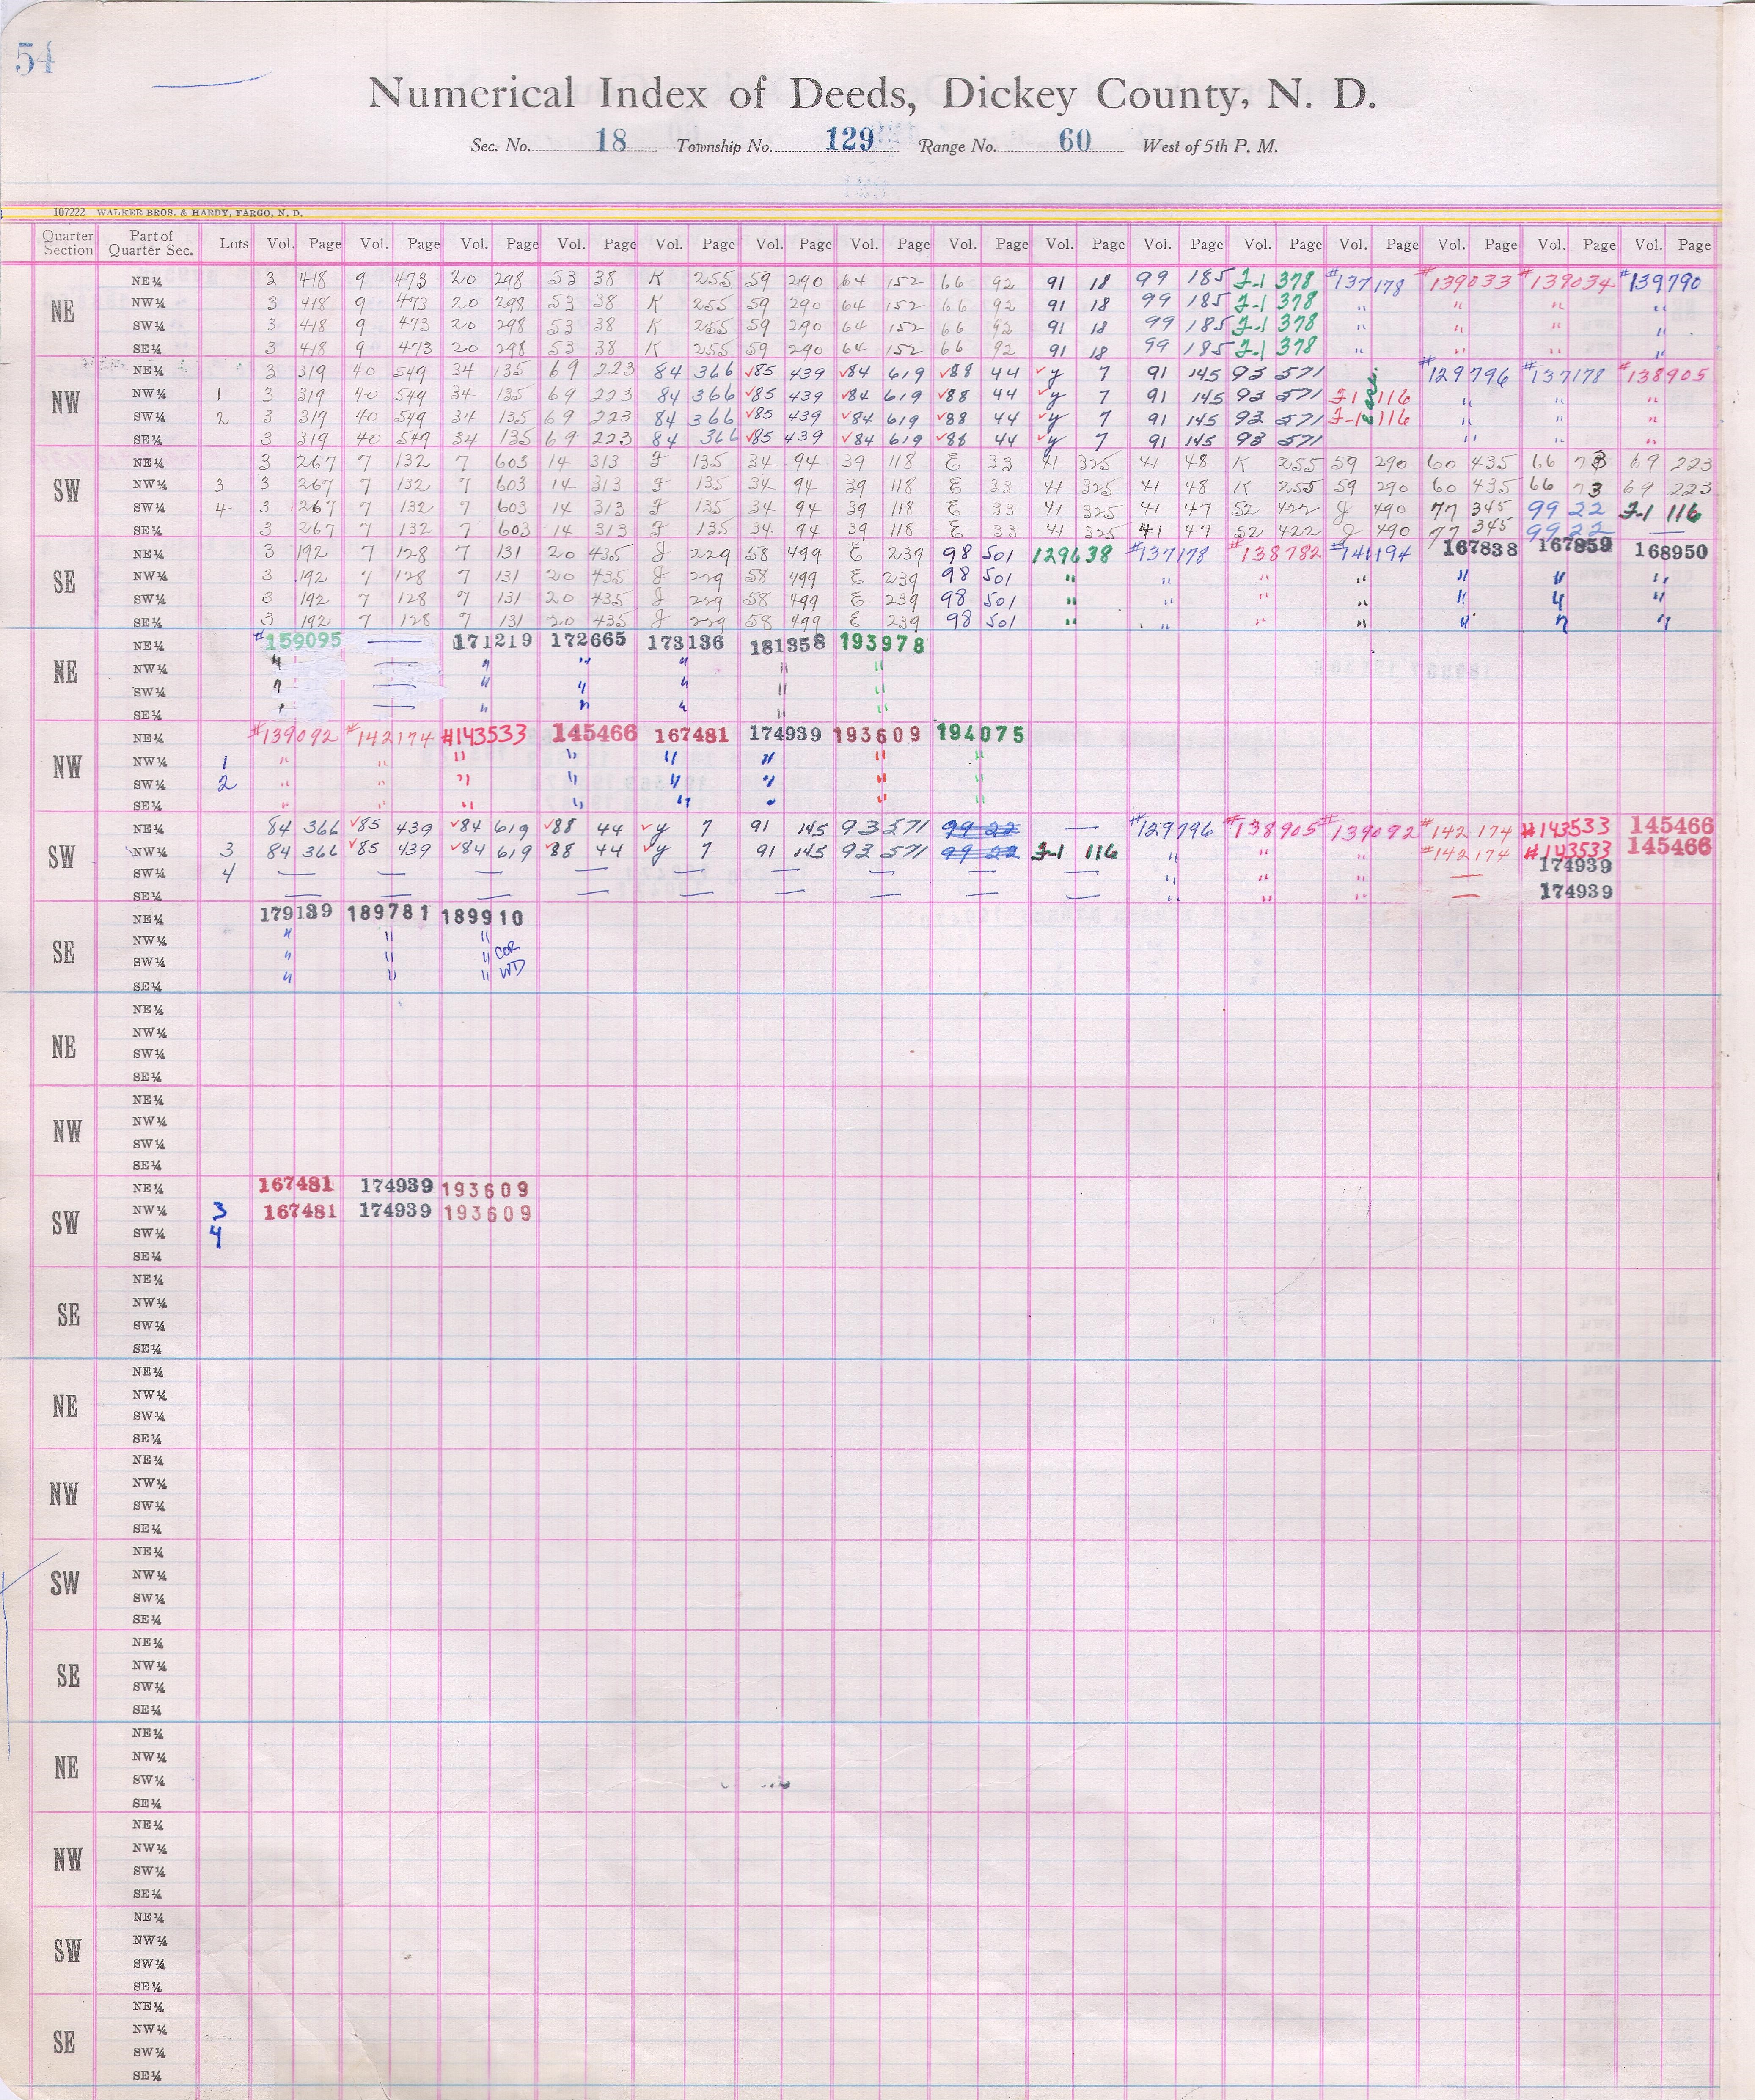 54
Numerical Index of Deeds, Dickey County, N. D.
Sec. No. 18 Township No. 129 Range No. 60 West of 5th P. M.
107222 WALKER BROS. & HARDY, FARGO, N. D.
Quarter Section Part of Quarter Sec. Lots Vol. Page Vol. Page Vol. Page Vol. Page Vol. Page Vol. Page Vol. Page Vol. Page Vol. Page Vol. Page Vol. Page Vol. Page Vol. Page Vol. Page Vol. Page
NE NE¼ 3 418 9 473 20 298 53 38 K 255 59 290 64 152 66 92 91 18 99 185 J-1 378 #137178 #139033 #139034 #139790
NW¼ 3 418 9 473 20 298 53 38 K 255 59 290 64 152 66 92 91 18 99 185 J-1 378 " " " "
SW¼ 3 418 9 473 20 298 53 38 K 255 59 290 64 152 66 92 91 18 99 185 J-1 378 " " " "
SE¼ 3 418 9 473 20 298 53 38 K 255 59 290 64 152 66 92 91 18 99 185 J-1 378 " " " "
NW NE¼ 3 319 40 549 34 135 69 223 84 366 ✓85 439 ✓84 619 ✓88 44 ✓y 7 91 145 93 571 #129796 #137178 #138905
NW¼ 1 3 319 40 549 34 135 69 223 84 366 ✓85 439 ✓84 619 ✓88 44 ✓y 7 91 145 93 571 J-1 116 " " "
SW¼ 2 3 319 40 549 34 135 69 223 84 366 ✓85 439 ✓84 619 ✓88 44 ✓y 7 91 145 93 571 J-1 116 " " "
SE¼ 3 319 40 549 34 135 69 223 84 366 ✓85 439 ✓84 619 ✓88 44 ✓y 7 91 145 93 571 " " "
SW NE¼ 3 267 7 132 7 603 14 313 J 135 34 94 39 118 E 33 41 325 41 48 K 255 59 290 60 435 66 73 69 223
NW¼ 3 3 267 7 132 7 603 14 313 J 135 34 94 39 118 E 33 41 325 41 48 K 255 59 290 60 435 66 73 69 223
SW¼ 4 3 267 7 132 7 603 14 313 J 135 34 94 39 118 E 33 41 325 41 47 52 422 J 490 77 345 99 22 J-1 116
SE¼ 3 267 7 132 7 603 14 313 J 135 34 94 39 118 E 33 41 325 41 47 52 422 J 490 77 345 99 22 —
SE NE¼ 3 192 7 128 7 131 20 435 J 229 58 499 E 239 98 501 129638 #137178 #138782 #141194 167838 167859 168950
NW¼ 3 192 7 128 7 131 20 435 J 229 58 499 E 239 98 501 " " " " " " "
SW¼ 3 192 7 128 7 131 20 435 J 229 58 499 E 239 98 501 " " " " " " "
SE¼ 3 192 7 128 7 131 20 435 J 229 58 499 E 239 98 501 " " " " " " "
NE NE¼ #159095 — 171219 172665 173136 181358 193978
NW¼ " — " " " " "
SW¼ " — " " " " "
SE¼ " — " " " " "
NW NE¼ #139092 #142174 #143533 145466 167481 174939 193609 194075
NW¼ 1 " " " " " " " "
SW¼ 2 " " " " " " " "
SE¼ " " " " " " " "
SW NE¼ 84 366 ✓85 439 ✓84 619 ✓88 44 ✓y 7 91 145 93 571 99 22 — #129796 #138905 #139092 #142174 #143533 145466
NW¼ 3 84 366 ✓85 439 ✓84 619 ✓88 44 ✓y 7 91 145 93 571 99 22 J-1 116 " " " #142174 #143533 145466
SW¼ 4 — — — — — — — — " " " — 174939
SE¼ — — — — — — — — " " " — 174939
SE NE¼ 179139 189781 189910
NW¼ " " "
SW¼ " " " COR
SE¼ " " " WD
NE NE¼
NW¼
SW¼
SE¼
NW NE¼
NW¼
SW¼
SE¼
SW NE¼ 167481 174939 193609
NW¼ 3 167481 174939 193609
SW¼ 4
SE¼
SE NE¼
NW¼
SW¼
SE¼
NE NE¼
NW¼
SW¼
SE¼
NW NE¼
NW¼
SW¼
SE¼
SW NE¼
NW¼
SW¼
SE¼
SE NE¼
NW¼
SW¼
SE¼
NE NE¼
NW¼
SW¼
SE¼
NW NE¼
NW¼
SW¼
SE¼
SW NE¼
NW¼
SW¼
SE¼
SE NE¼
NW¼
SW¼
SE¼